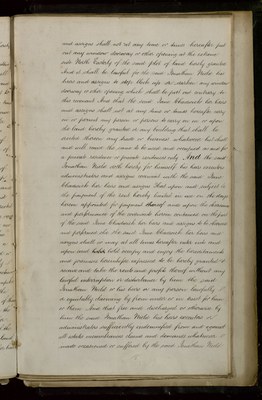 and assigns shall not at any time or times hereafter put
out any window doorway or other opening at the extreme
North Easterly of the said plot of land hereby granted
And it shall be lawful for the said Jonathan Nield his
heirs and assigns to stop block up or darken any window
doorway or other opening which shall be put out contrary to
this covenant And that the said his heirs
and assigns shall not at any time or times hereafter carry
on or permit any person or persons to carry on in or upon
the land hereby granted or any building that shall be
erected thereon any trade or business whatsoever but shall
and will cause the same to be used and occupied as and for
a private residence or private residences only And the said
Jonathan Nield doth hereby for himself his heirs executors
administrators and assigns covenant with the said
his heirs and assigns That upon and subject to
the payment of the rent hereby limited in use on the days
herein appointed for payment thereof and upon the observance
and performance of the covenants herein contained on the part
of the said his heirs and assigns to be observed
and performed he the said his heirs and
assigns shall or may at all times hereafter enter into and
upon and hold occupy and enjoy the hereditaments
and premises hereinbefore expressed to be hereby granted &
receive and take the rents and profits thereof without any
lawful interruption or disturbance by him the said
Jonathan Nield or his heirs or any person lawfully
or equitably claiming by from under or in trust for him
or them And that free and discharged or otherwise by
him the said Jonathan Nield his heirs executors or
administrators sufficiently indemnified from and against
all estates incumbrances claims and demands whatsoever
made occasioned or suffered by the said Jonathan Nield